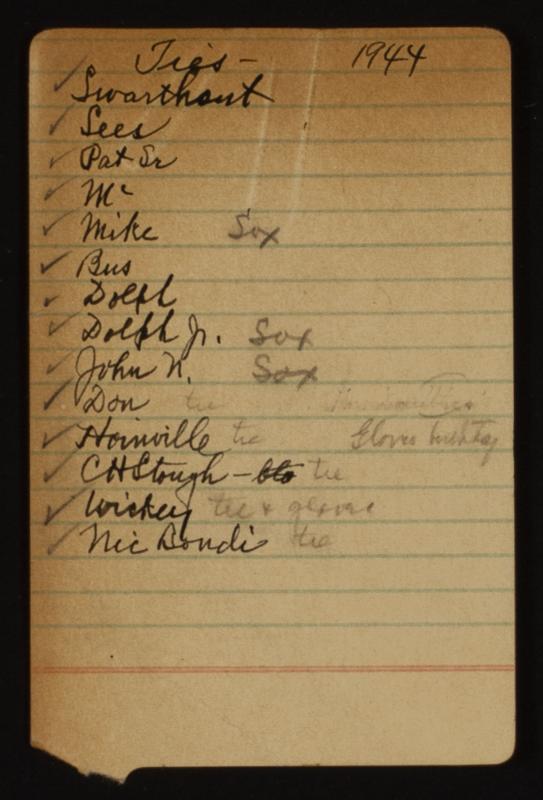 Ties - 1944
✓ Swarthout
✓ Sees
✓ Pat Sr
✓ Mc
✓ Mike Sox
✓ Bus
✓ Dolph
✓ Dolph Jr. Sox
✓ John N. Sox
✓ Don tie
✓ Hoinville tie Gloves birthday
✓ CH Stough - tie
✓ Wickey tie & gloves
✓ Nic Bondi tie